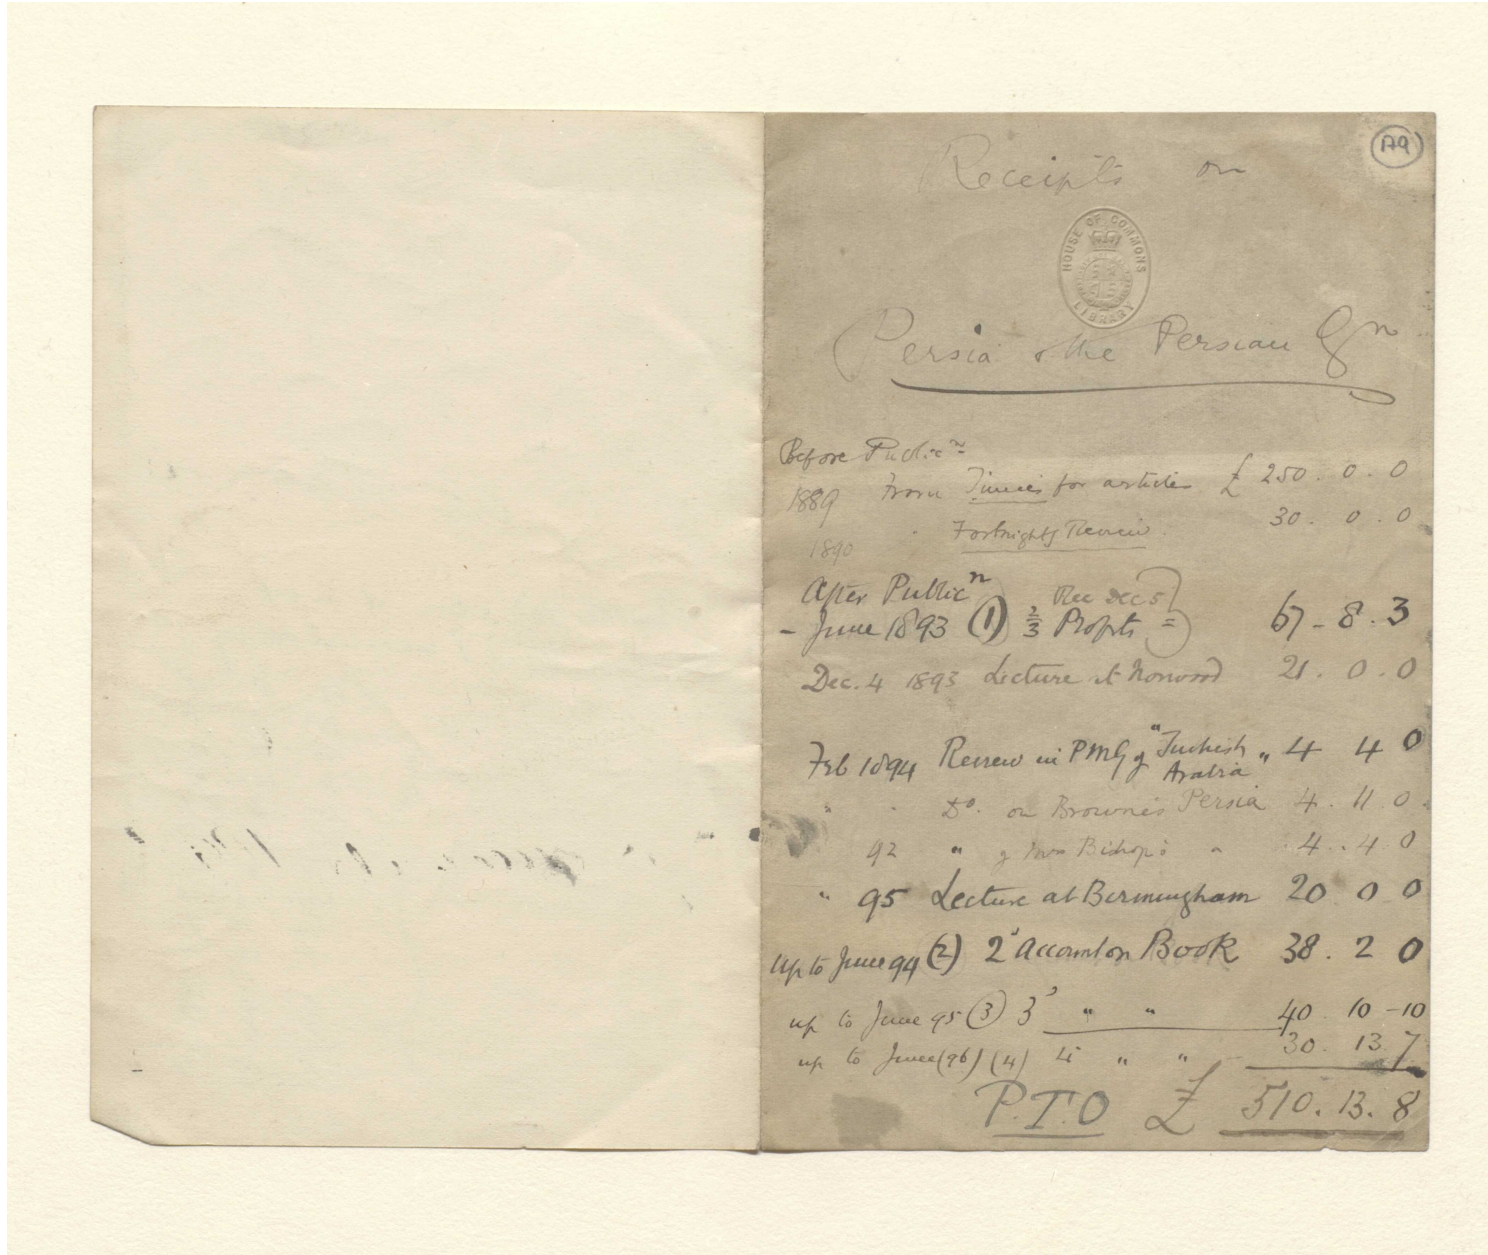 179
Receipts on
HOUSE OF COMMONS
LIBRARY
Persia & the Persian Qn
Before Publicn
1889 From Times for articles £ 250. 0. 0
1890 " Fortnightly Review. 30. 0. 0
After Publicn
- June 1893 (1) 2/3 Profits = Rec Dec 5 67 - 8. 3
Dec. 4 1893 Lecture at Norwood 21. 0. 0
Feb 1894 Review in PMG of "Turkish Arabia" 4 4 0
" " Do. on Browne's Persia 4. 11 0
92 " of Mrs Bishop's " 4. 4 0
" 95 Lecture at Birmingham 20 0 0
up to June 94 (2) 2d Account on Book 38. 2 0
up to June 95 (3) 3d " " 40. 10 - 10
up to June (96) (4) 4 " " 30. 13. 7
P.T.O £ 510. 13. 8